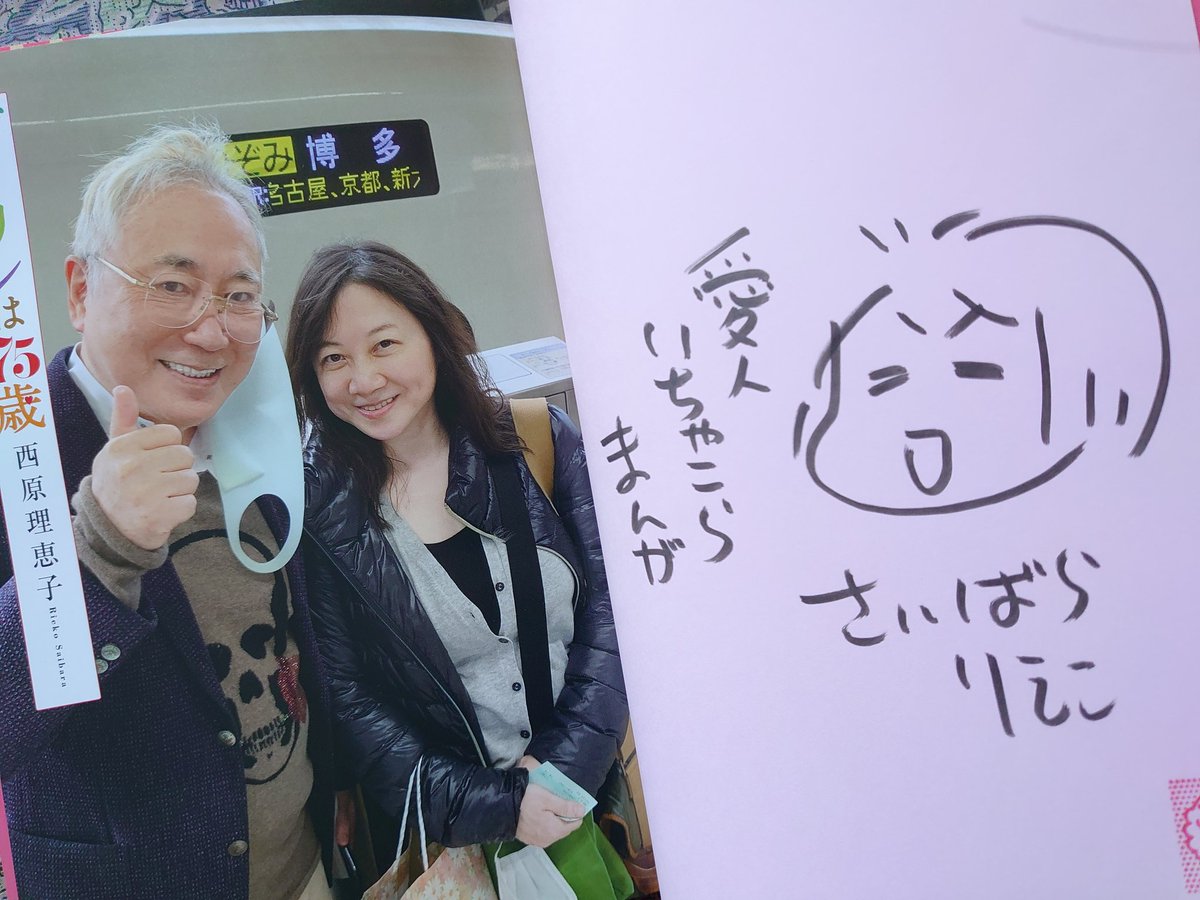 は
75
歳
西原理恵子
Rieko Saibara
ぞみ 博多
名古屋、京都、新
愛人
いちゃこら
まんが
さいばら
りえこ